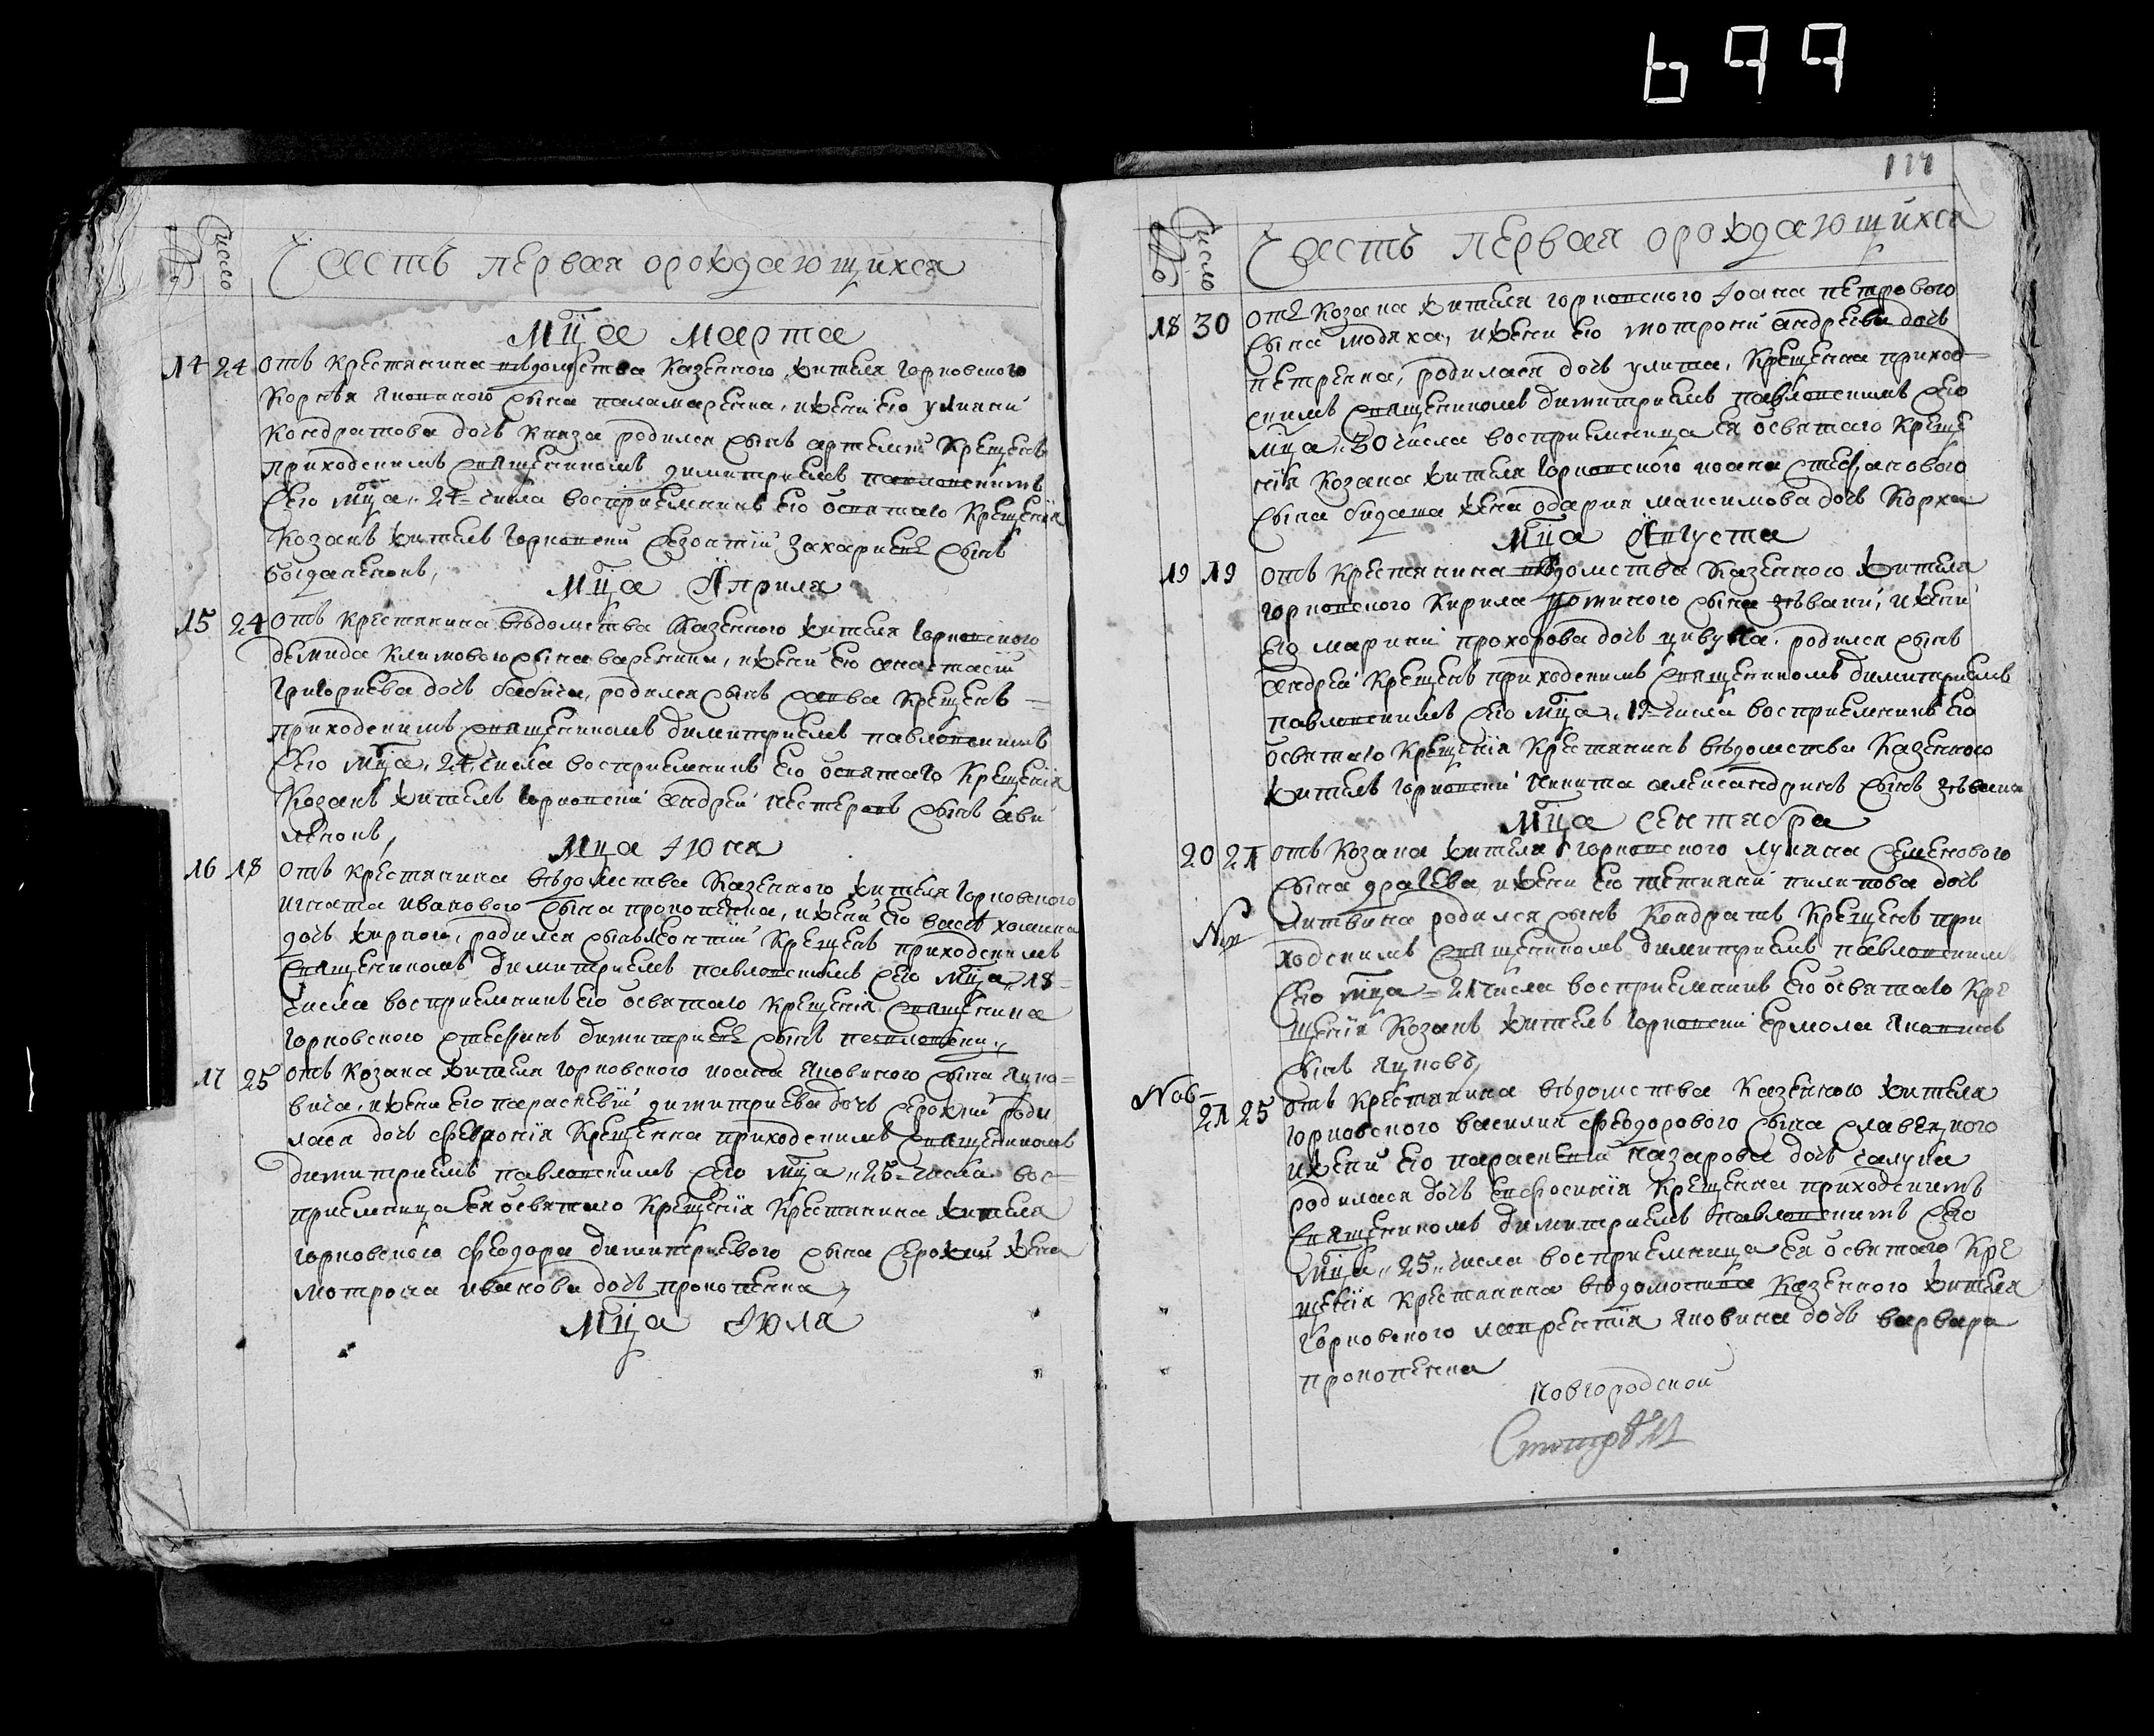 699
Число
Часть первая орождающихся
Мца Марта
14 24 отъ крестянина вѣдомства казенного жителя горковского
Корнѣя Яковлего сына паламаренка, ижени его улияни
Кондратова дочь князя родился сынъ артемий крещенъ
приходскимъ священникомъ димитриемъ павловскимъ
сего мца 24 числа восприемникъ его освятаго крещения
Козакъ житель горковский захариевъ сынъ
богдаленокъ,
Мца Априля
15 24 отъ крестянина вѣдомства казенного жителя горковского
демида климового сына вареники, ижени его анастасии
григориева дочь бабича, родился сынъ савва крещенъ
приходскимъ священникомъ димитриемъ павловскимъ
сего мца 24 числа восприемникъ его освятаго крещенія
Козакъ житель горковский андрей нестеровъ сынъ
Мца Июня
16 18 отъ крестянина вѣдомства казенного жителя горковского
игната иванового сына прокопенка, ижени его хомина
дочь жирного, родился сынъ леонтий крещенъ приходскимъ
священникомъ димитриемъ павловскимъ сего мца 18
числа восприемникъ его освятаго крещенія священника
горковского стефанъ димитриевъ сынъ павловский
17 25 отъ козака жителя горковского иоана яковлего сына яцко
вича, ижени его параскевіи димитриева дочь сероктий роди
лася дочь февронія крещенна приходскимъ священникомъ
димитриемъ павловскимъ сего мца 25 числа вос
приемница ея освятаго крещенія крестянина жителя
горковского феодора димитриевого сына жена
мотрона иванова дочь прокопенка
Мца Июля
117
Число
Часть первая орождающихся
18 30 отъ козака жителя горковского Иоана петрового
сына модяха, ижени его мотрони андреева дочь
петренка, родилася дочь улита, крещенна приход
скимъ священникомъ димитриемъ павловскимъ сего
мца 30 числа восприемница ея освятаго креще
нія козака жителя горковского иоана стефанового
сына жена одария максимова дочь коржа
Мца Августа
19 19 отъ крестянина вѣдомства казенного жителя
горковского кирила сына зѣвани, ижени
его марини прохорова дочь цивулка, родился сынъ
андрей крещенъ приходскимъ священникомъ димитриемъ
павловскимъ сего мца 19 числа восприемникъ его
освятаго крещенія крестянинъ вѣдомства казенного
житель горковский никита александринъ сынъ
Мца Сентября
20 21 отъ козака жителя горковского лукяна семенового
сына драгева, ижени его тетияни пилипова дочь
литвина родился сынъ кондратъ крещенъ при
ходскимъ священникомъ димитриемъ павловскимъ
сего мца 21 числа восприемникъ его освятаго кре
щенія козакъ житель горковский ермола яковлевъ
сынъ яцковъ,
Нов
21 25 отъ крестянина вѣдомства казенного жителя
горковского василия феодорового сына славецкого
ижени его параскевии назарова дочь галушка
родилася дочь евфросинія крещенна приходскимъ
священникомъ димитриемъ павловскимъ сего
мца 25 числа восприемница ея освятаго кре
щенія крестянина вѣдомства казенного жителя
горковского лаврентія яковина дочь варвара
прокопенка
Новгородской